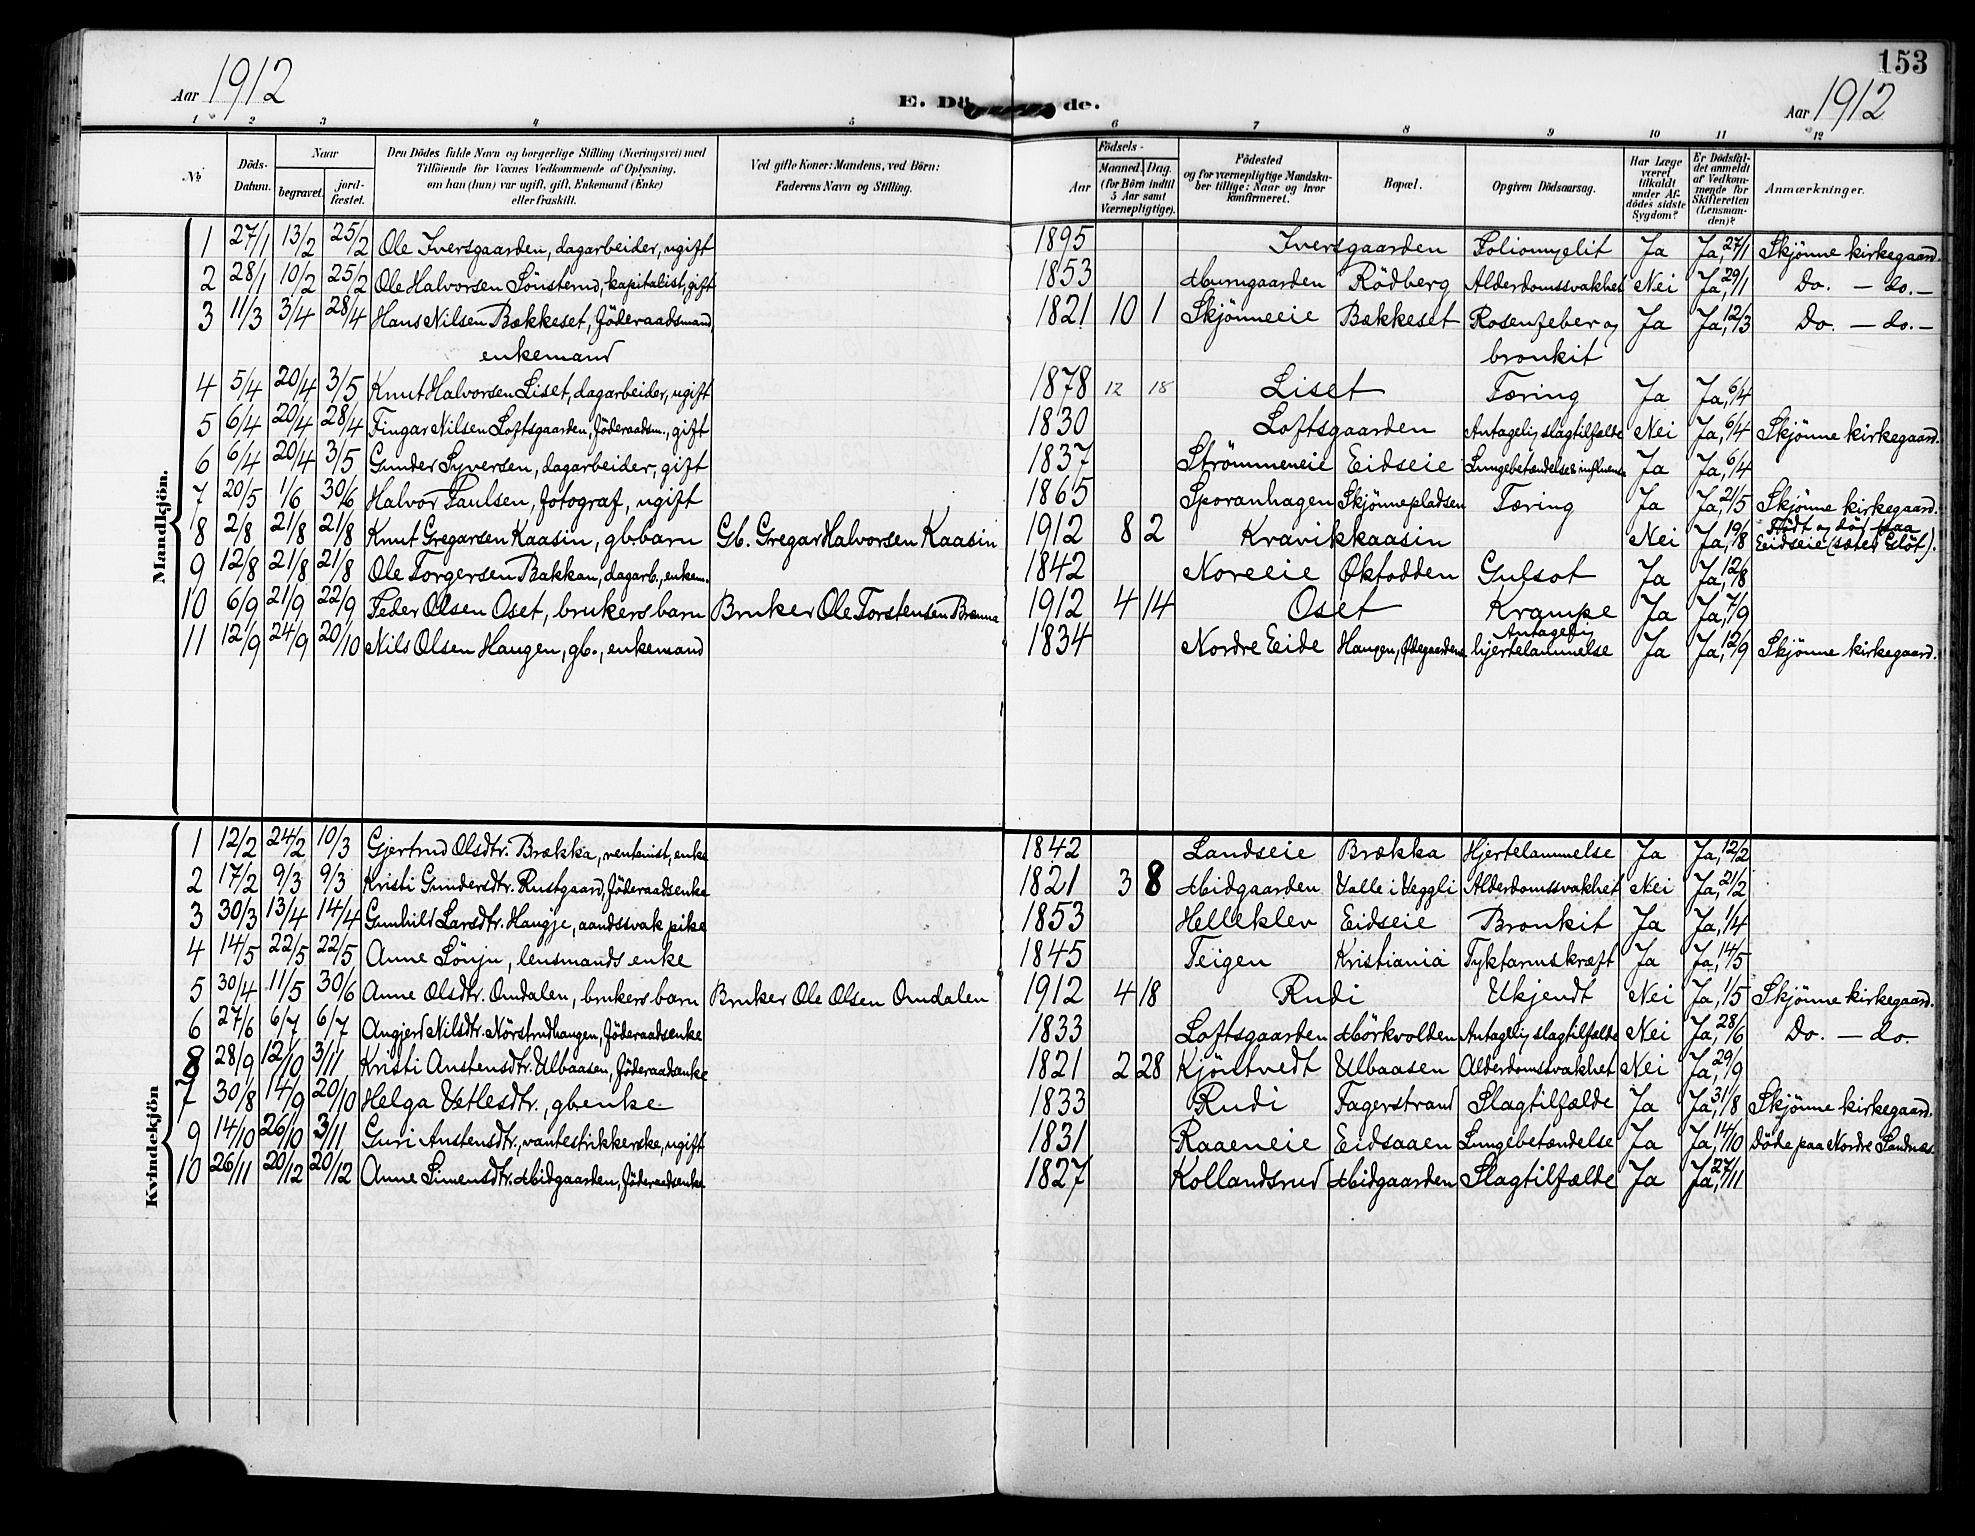 153
Aar 1912
E. Dö de.
Aar 1912
1 2 3 4 5 6 7 8 9 10 11 12
№
Döds-Datum.
Naar
begravet.
jord-fæstet.
Den Dödes fulde Navn og borgerlige Stilling (Næringsvei) med
Tilföiende for Voxnes Vedkommende af Oplysning,
om han (hun) var ugift, gift, Enkemand (Enke)
eller fraskilt.
Ved gifte Koner: Mandens, ved Börn:
Faderens Navn og Stilling.
Födsels-
Aar
Maaned. Dag.
(for Börn indtil
5 Aar samt
Værnepligtige).
Födested
og for værnepligtige Mandska-
ber tillige: Naar og hvor
konfirmeret.
Bopæl.
Opgiven Dödsaarsag.
Har Læge
været
tilkaldt
under Af-
dödes sidste
Sygdom?
Er Dödsfal-
det anmeldt
af Vedkom-
mende for
Skifteretten
(Lensman-
den)?
Anmærkninger.
Mandkjön.
1 27/1 13/2 25/2 Ole Iversgaarden, dagarbeider, ugift 1895 Iversgaarden Poliomyelit Ja Ja, 27/1 Skjönne kirkegaard.
2 28/1 10/2 25/2 Ole Halvorsen Sönsterud, kapitalist, gift 1853 Rödberg Alderdomssvakhet Nei Ja, 29/1 Do. – do. –
3 11/3 3/4 28/4 Hans Nilsen Bækkeset, föderaadsmand, 1821 10 1 Skjönneeie Bækkeset Rosenfeber og Ja Ja, 12/3 Do. – do. –
enkemand bronkit
4 5/4 20/4 3/5 Knut Halvorsen Liset, dagarbeider, ugift 1878 12 18 Liset Tæring Ja Ja, 6/4
5 6/4 20/4 28/4 Fingar Nilsen Loftsgaarden, föderaadsm., gift 1830 Loftsgaarden Antagelig slagtilfælde Nei Ja, 6/4 Skjönne kirkegaard.
6 6/4 20/4 3/5 Gunder Syversen, dagarbeider, gift 1837 Strömmeneie Eidseie Lungebetændelse & influensa Ja Ja, 6/4
7 20/5 1/6 30/6 Halvor Paulsen, fotograf, ugift 1865 Sporanhagen Skjönnepladsen Tæring Ja Ja, 21/5 Skjönne kirkegaard.
8 2/8 21/8 21/8 Knut Gregarsen Kaasin, gb.barn Gb. Gregar Halvorsen Kaasin 1912 8 2 Kravikkaasin Nei Ja, 19/8 Födt og död paa
Eidseie
9 12/8 21/8 21/8 Ole Torgersen Bakkan, dagarb., enkem. 1842 Noreeie Öktodden Gulsot Ja Ja, 12/8
10 6/9 21/9 22/9 Peder Olsen Oset, brukers barn Bruker Ole Torstensen Brenna 1912 4 14 Oset Krampe Ja Ja, 7/9
11 12/9 24/9 20/10 Nils Olsen Haugen, gb., enkemand 1834 Nordre Eide Haugen, Ödegaardens Antagelig hjertelammelse Ja Ja, 12/9 Skjönne kirkegaard.
Kvindekjön
1 12/2 24/2 10/3 Gjertrud Olsdtr. Brækka, rentenist, enke 1842 Landseie Brækka Hjertelammelse Ja Ja, 12/2
2 17/2 9/3 9/3 Kristi Gundersdtr. Rustgaard, föderaadsenke 1821 3 8 Midgaarden Valle i Veggli Alderdomssvakhet Nei Ja, 21/2
3 30/3 13/4 14/4 Gunhild Larsdtr. Haugje, aandssvak pike 1853 Helleklev Eidseie Bronkit Ja Ja, 1/4
4 14/5 22/5 22/5 Anne Sönju, lensmands enke 1845 Teigen Kristiania Tyktarmskræft Ja Ja, 14/5
5 30/4 11/5 30/6 Anne Olsdtr. Omdalen, brukers barn Bruker Ole Olsen Omdalen 1912 4 18 Rudi Ukjendt Nei Ja, 1/5 Skjönne kirkegaard.
6 27/6 6/7 6/7 Angjerd Nilsdtr. Nörstrudhaugen, föderaadsenke 1833 Loftsgaarden Mörkvolden Antagelig slagtilfælde Nei Ja, 28/6 Do. – do.
8 28/9 12/10 3/11 Kristi Anstensdtr. Ulbaasen, föderaadsenke 1821 2 28 Kjöntvedt Ulbaasen Alderdomssvakhet Nei Ja, 29/9
7 30/8 14/9 20/10 Helga Vetlesdtr., gb.enke 1833 Rudi Fagerstrand Slagtilfælde Ja Ja, 31/8 Skjönne kirkegaard.
9 14/10 26/10 3/11 Guri Anstensdtr., vantestrikkerske, ugift 1831 Raaeneie Eidsaaen Lungebetændelse Ja Ja, 14/10 Döde paa Nordre Sandnæs.
10 26/11 20/12 20/12 Anne Simensdtr. Midgaarden, föderaadsenke 1827 Kollandsrud Midgaarden Slagtilfælde Ja Ja, 27/11